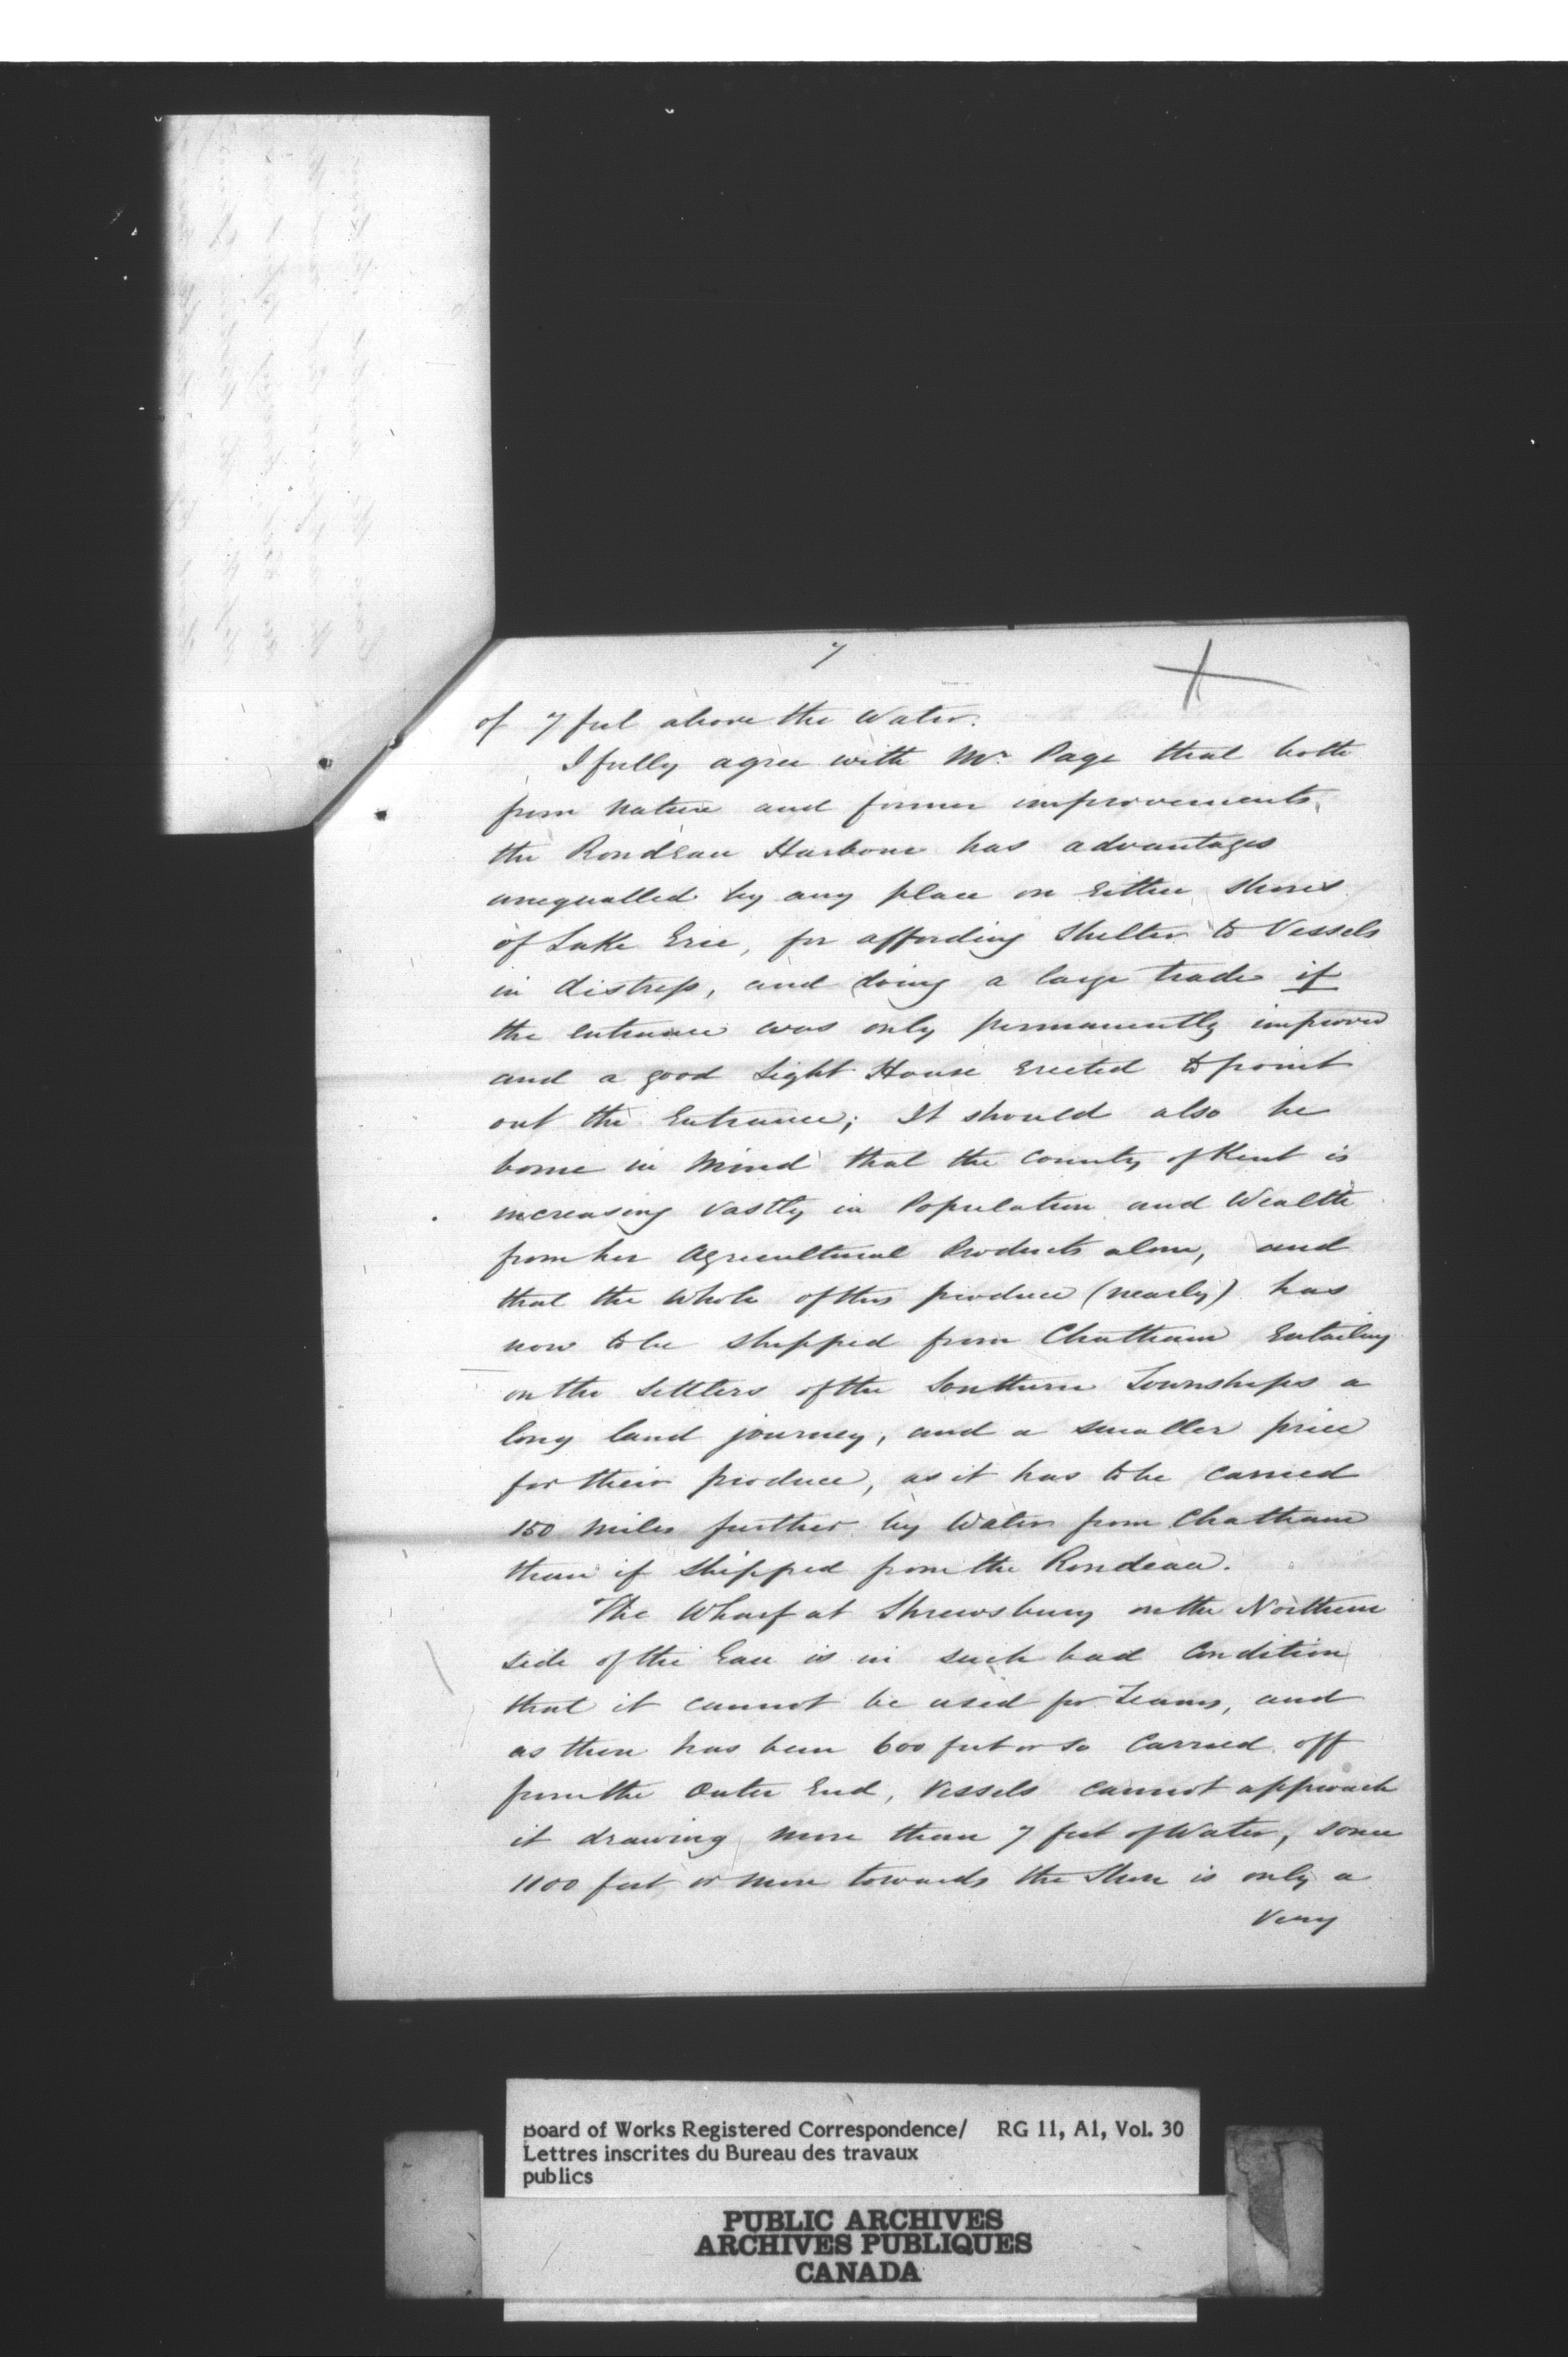 7
of 7 feet above the Water.
I fully agree with Mr. Page that both
from Nature and former improvements,
the Rondeau Harbour has advantages
unequalled by any place on Either Shores
of Lake Erie, for affording Shelter to Vessels
in distress, and doing a large trade if
the entrance was only permanently improved
and a good Light House Erected to point
out the Entrance; It should also be
borne in Mind that the County of Kent is
increasing Vastly in Population and Wealth
from her Agricultural Products alone, and
that the Whole of this produce (nearly) has
now to be shipped from Chatham Entailing
on the Settlers of the Southern Townships a
long land journey, and a smaller price
for their produce, as it has to be carried
150 Miles further by Water from Chatham
than if Shipped from the Rondeau.
The Wharf at Shrewsbury on the Northern
side of the Eau is in such bad Condition
that it cannot be used for Teams, and
as there has been 600 feet or so Carried off
from the Outer End, Vessels cannot approach
it drawing more than 7 feet of Water, some
1100 feet or more towards the Shore is only a
Very
Board of Works Registered Correspondence/ RG 11, A1, Vol. 30
Lettres inscrites du Bureau des travaux
publics
PUBLIC ARCHIVES
ARCHIVES PUBLIQUES
CANADA